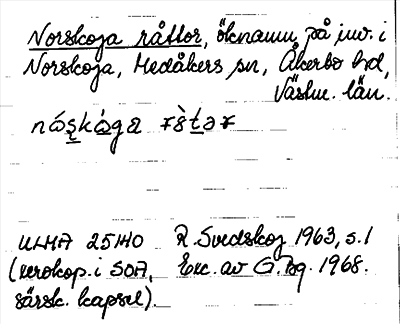 Norskoga råttor, öknamn på inv. i
Norskoga, Medåkers sn, Åkerbo hd,
Västm. län.
ULMA 25140 R Svedskog 1963, s. 1
(xerokop. i SOA, Exc. av G. Bg. 1968.
särsk. kapsel).